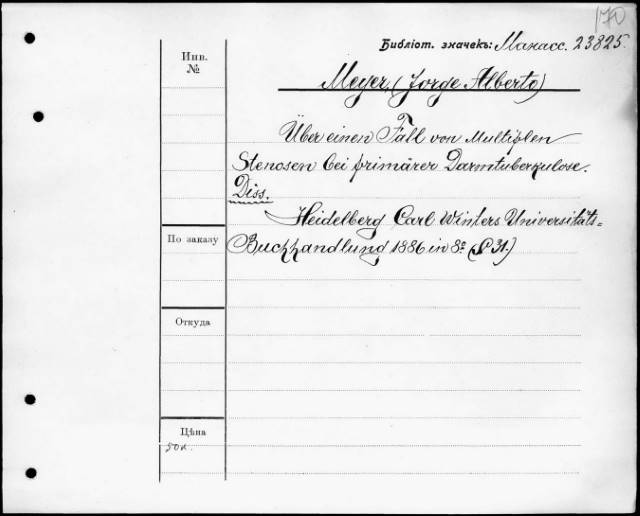 170
Библіот. значекъ: Манасс. 23825.
Инв.
№
Meyer, (Jorge Alberto)
Über einen Fall von Multiplen
Stenosen bei primärer Darmtuberkulose.
Diss.
Heidelberg Carl Winters Universitäts-
По заказу
Buchhandlung 1886 in 8º (S 31.)
Откуда
Цѣна
50к.